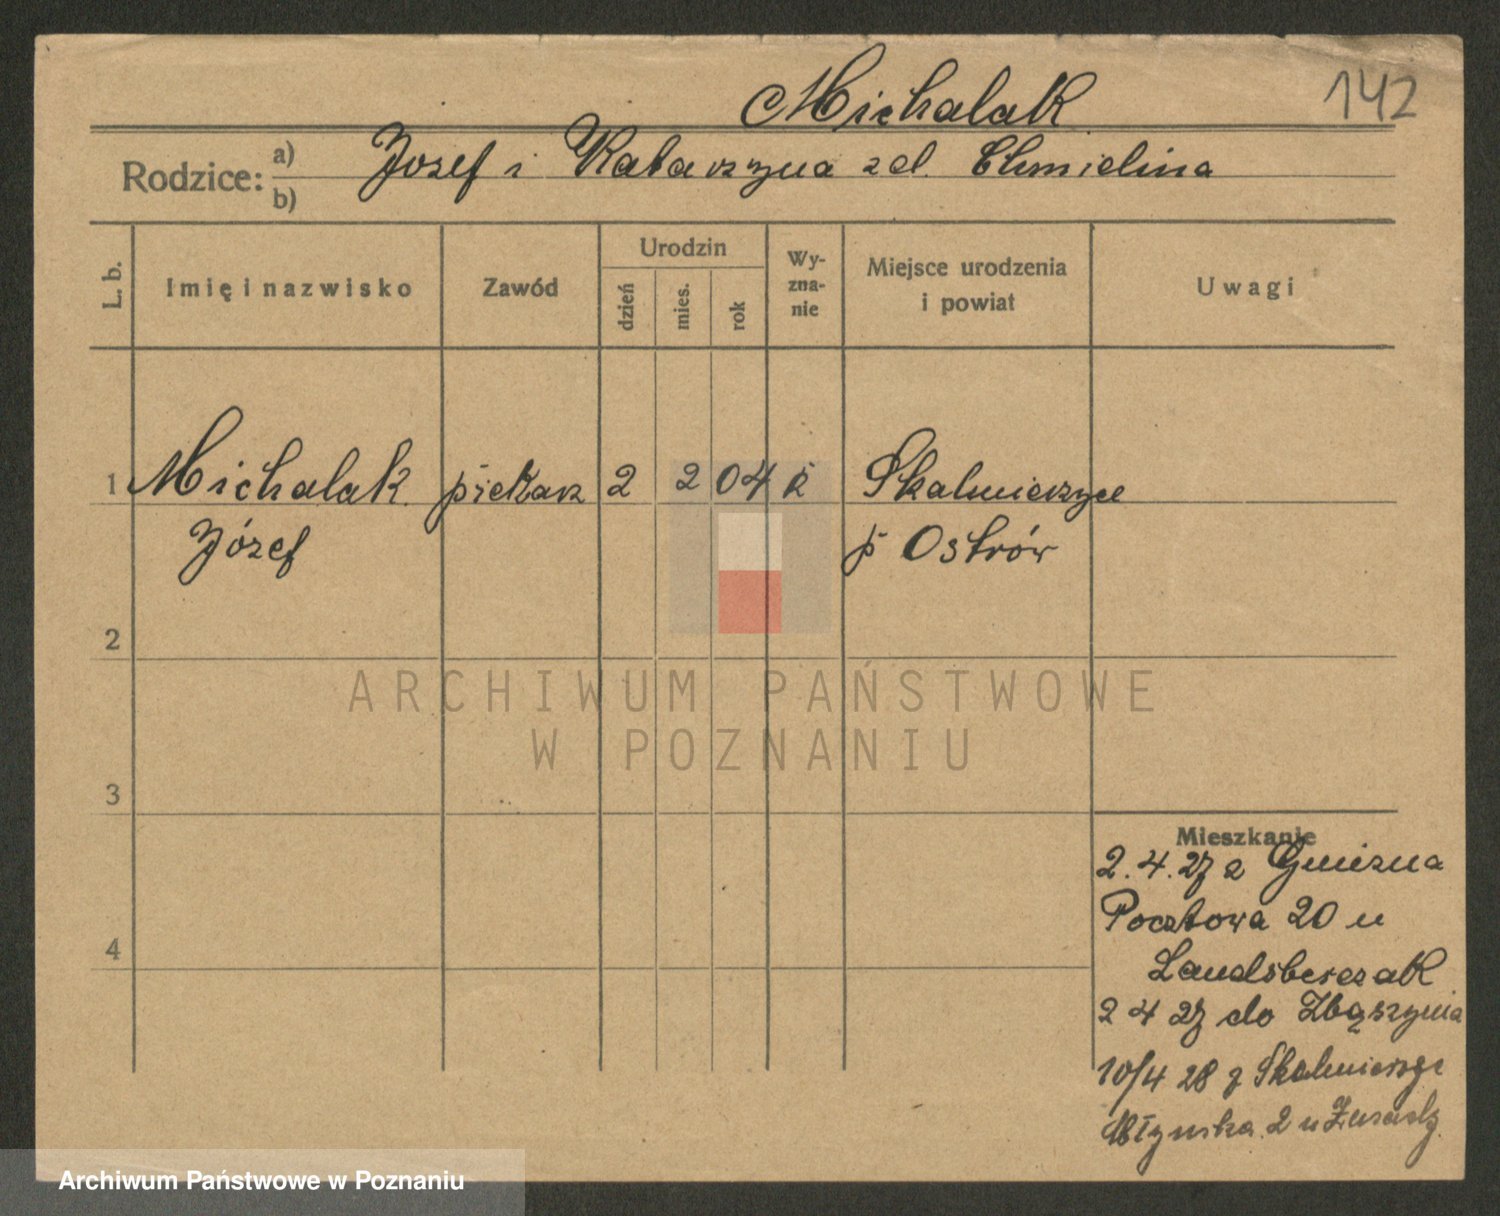 Michalak
142
Rodzice: a) Jozef i Katarzyna zd. Chmielina
b)
L. b.
Imię i nazwisko
Zawód
Urodzin
dzień
mies.
rok
Wy-
zna-
nie
Miejsce urodzenia
i powiat
Uwagi
1 Michalak piekarz 2 2 04 k Skalmierzyce
Józef p Ostrów
2
ARCHIWUM PAŃSTWOWE
W POZNANIU
3
Mieszkanie
2.4.27 z Gniezna
Pocztowa 20 u
4
Landsberczak
2 4 27 do Zbąszynia
10/4 28 z Skalmierzyc
Młynska 2 u
Archiwum Państwowe w Poznaniu